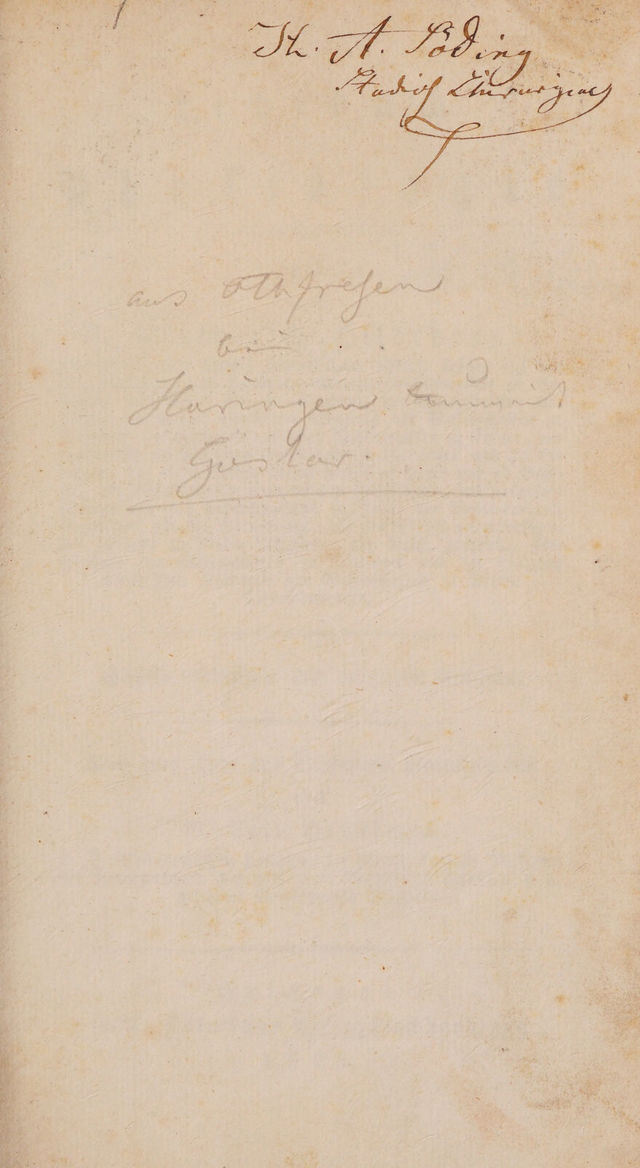 Th. A. Söding
Studios Chirurgiae
aus Othfresen
bei
Haringen
Goslar.